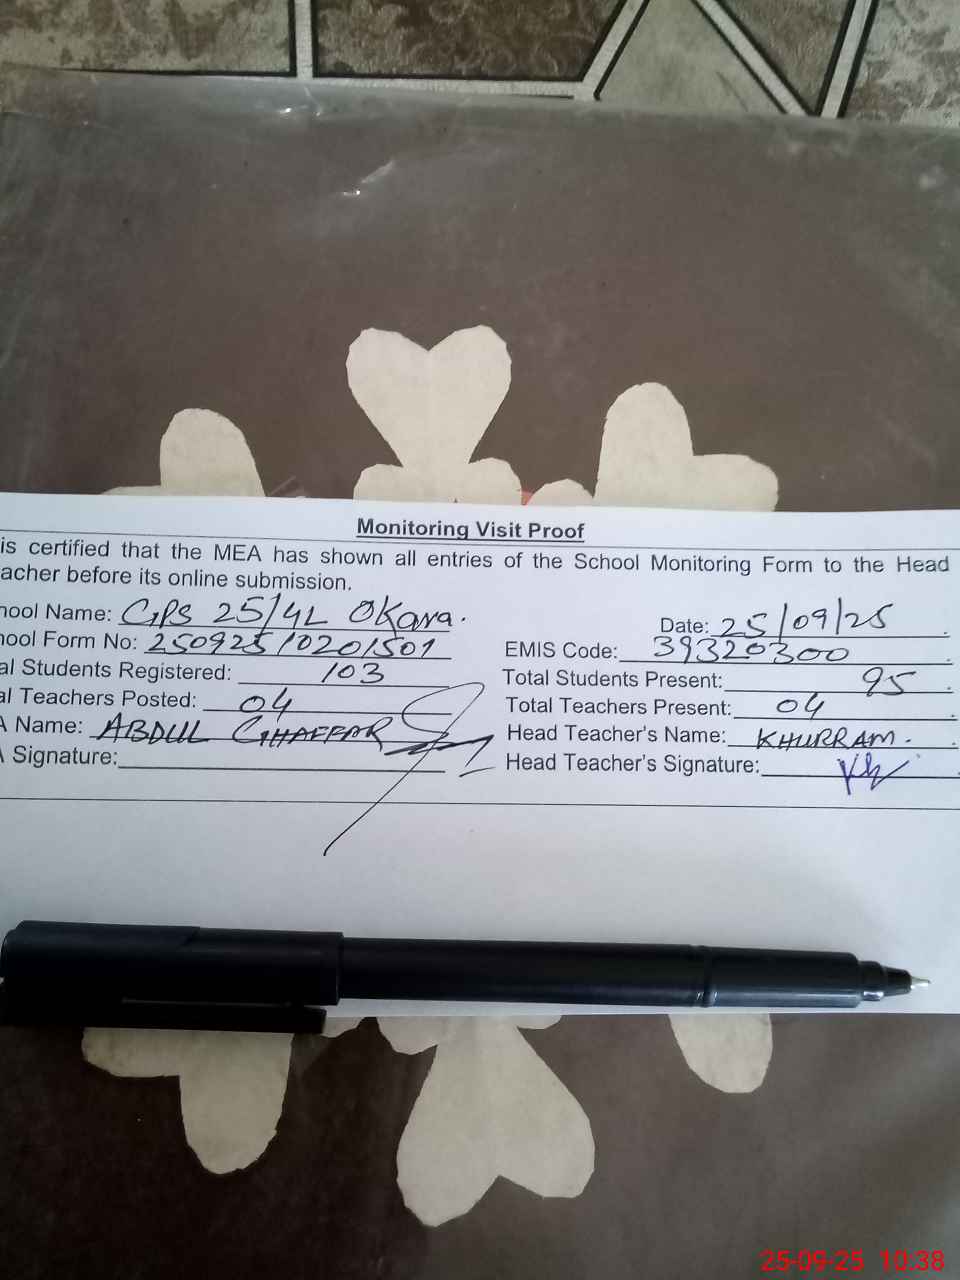 Monitoring Visit Proof
is certified that the MEA has shown all entries of the School Monitoring Form to the Head
acher before its online submission.
hool Name: GPS 25/4L Okara.
Date: 25/09/25
hool Form No: 250925/0201501
EMIS Code: 39320300
al Students Registered: 103
Total Students Present: 95
al Teachers Posted: 04
Total Teachers Present: 04
A Name: ABDUL GHAFFAR
Head Teacher's Name: KHURRAM.
A Signature:
Head Teacher's Signature:
25-09-25 10:38